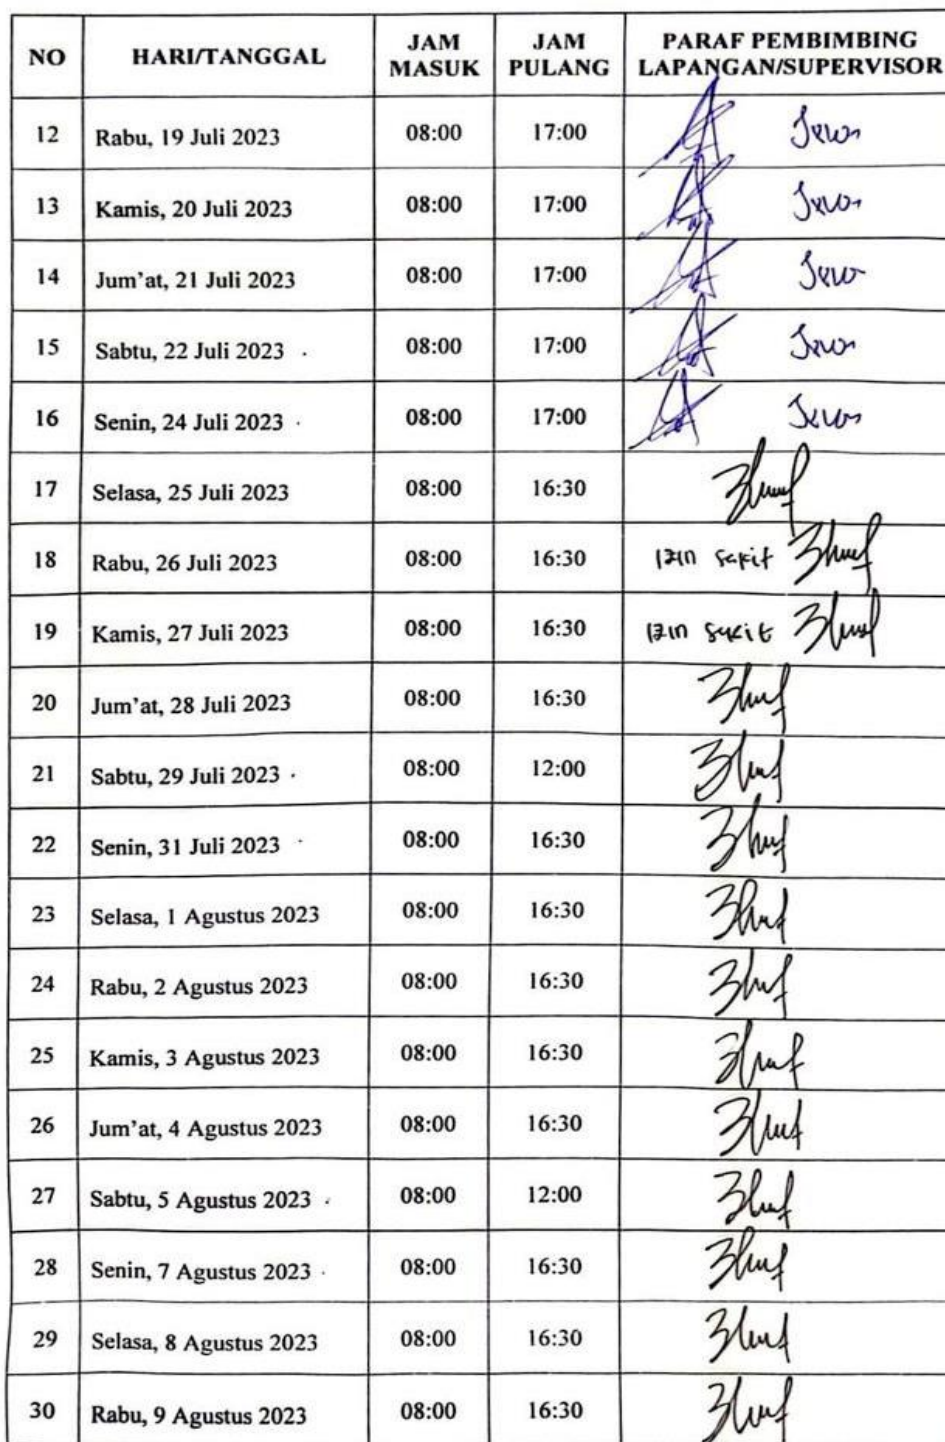 NO HARI/TANGGAL JAM MASUK JAM PULANG PARAF PEMBIMBING LAPANGAN/SUPERVISOR
12 Rabu, 19 Juli 2023 08:00 17:00
13 Kamis, 20 Juli 2023 08:00 17:00
14 Jum'at, 21 Juli 2023 08:00 17:00
15 Sabtu, 22 Juli 2023 08:00 17:00
16 Senin, 24 Juli 2023 08:00 17:00
17 Selasa, 25 Juli 2023 08:00 16:30
18 Rabu, 26 Juli 2023 08:00 16:30 izin sakit
19 Kamis, 27 Juli 2023 08:00 16:30 izin sakit
20 Jum'at, 28 Juli 2023 08:00 16:30
21 Sabtu, 29 Juli 2023 08:00 12:00
22 Senin, 31 Juli 2023 08:00 16:30
23 Selasa, 1 Agustus 2023 08:00 16:30
24 Rabu, 2 Agustus 2023 08:00 16:30
25 Kamis, 3 Agustus 2023 08:00 16:30
26 Jum'at, 4 Agustus 2023 08:00 16:30
27 Sabtu, 5 Agustus 2023 08:00 12:00
28 Senin, 7 Agustus 2023 08:00 16:30
29 Selasa, 8 Agustus 2023 08:00 16:30
30 Rabu, 9 Agustus 2023 08:00 16:30